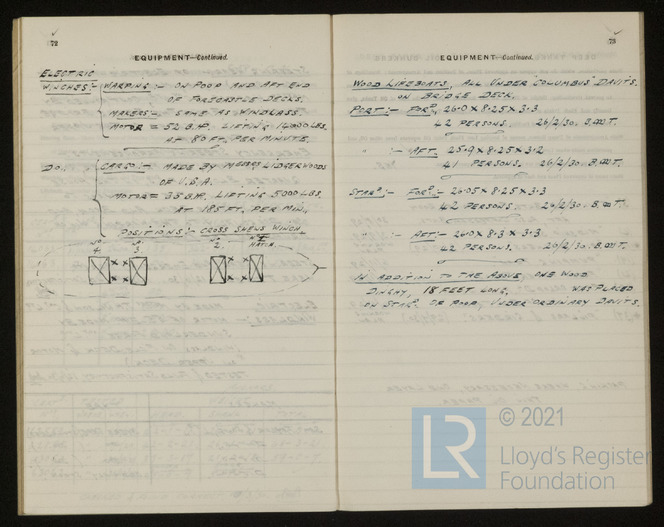 72
EQUIPMENT—Continued.
ELECTRIC
WINCHES:- WARPING :- ON POOP AND AFT END
OF FORECASTLE DECKS.
MAKERS:- SAME AS WINDLASS.
MOTOR = 52 B.H.P. LIFTING 14000 LBS.
AT 80 FT. PER MINUTE.
DO:- CARGO:- MADE BY MESSRS LIDGERWOODS
OF U.S.A.
MOTOR = 35 B.H.P. LIFTING 5000 LBS.
AT 185 FT. PER MIN.
POSITIONS:- CROSS SHEWS WINCH.
No 4. No 3. No 2. No 1 HATCH.
73
EQUIPMENT—Continued.
WOOD LIFEBOATS, ALL UNDER "COLUMBUS" DAVITS.
ON BRIDGE DECK.
PORT:- FORD. 26.0 X 8.25 X 3.3
42 PERSONS. 26/2/30. B.O.T.
" :- AFT. 25.9 X 8.25 X 3.2
41 PERSONS. 26/2/30. B.O.T.
STARD:- FORD:- 26.05 X 8.25 X 3.3
42 PERSONS. 26/2/30. B.O.T.
" :- AFT:- 26.0 X 8.3 X 3.3
42 PERSONS. 26/2/30. B.O.T.
IN ADDITION TO THE ABOVE, ONE WOOD
DINGHY, 18 FEET LONG, WAS PLACED
ON STARD. OF POOP, UNDER ORDINARY DAVITS.
LR © 2021
Lloyd's Register
Foundation